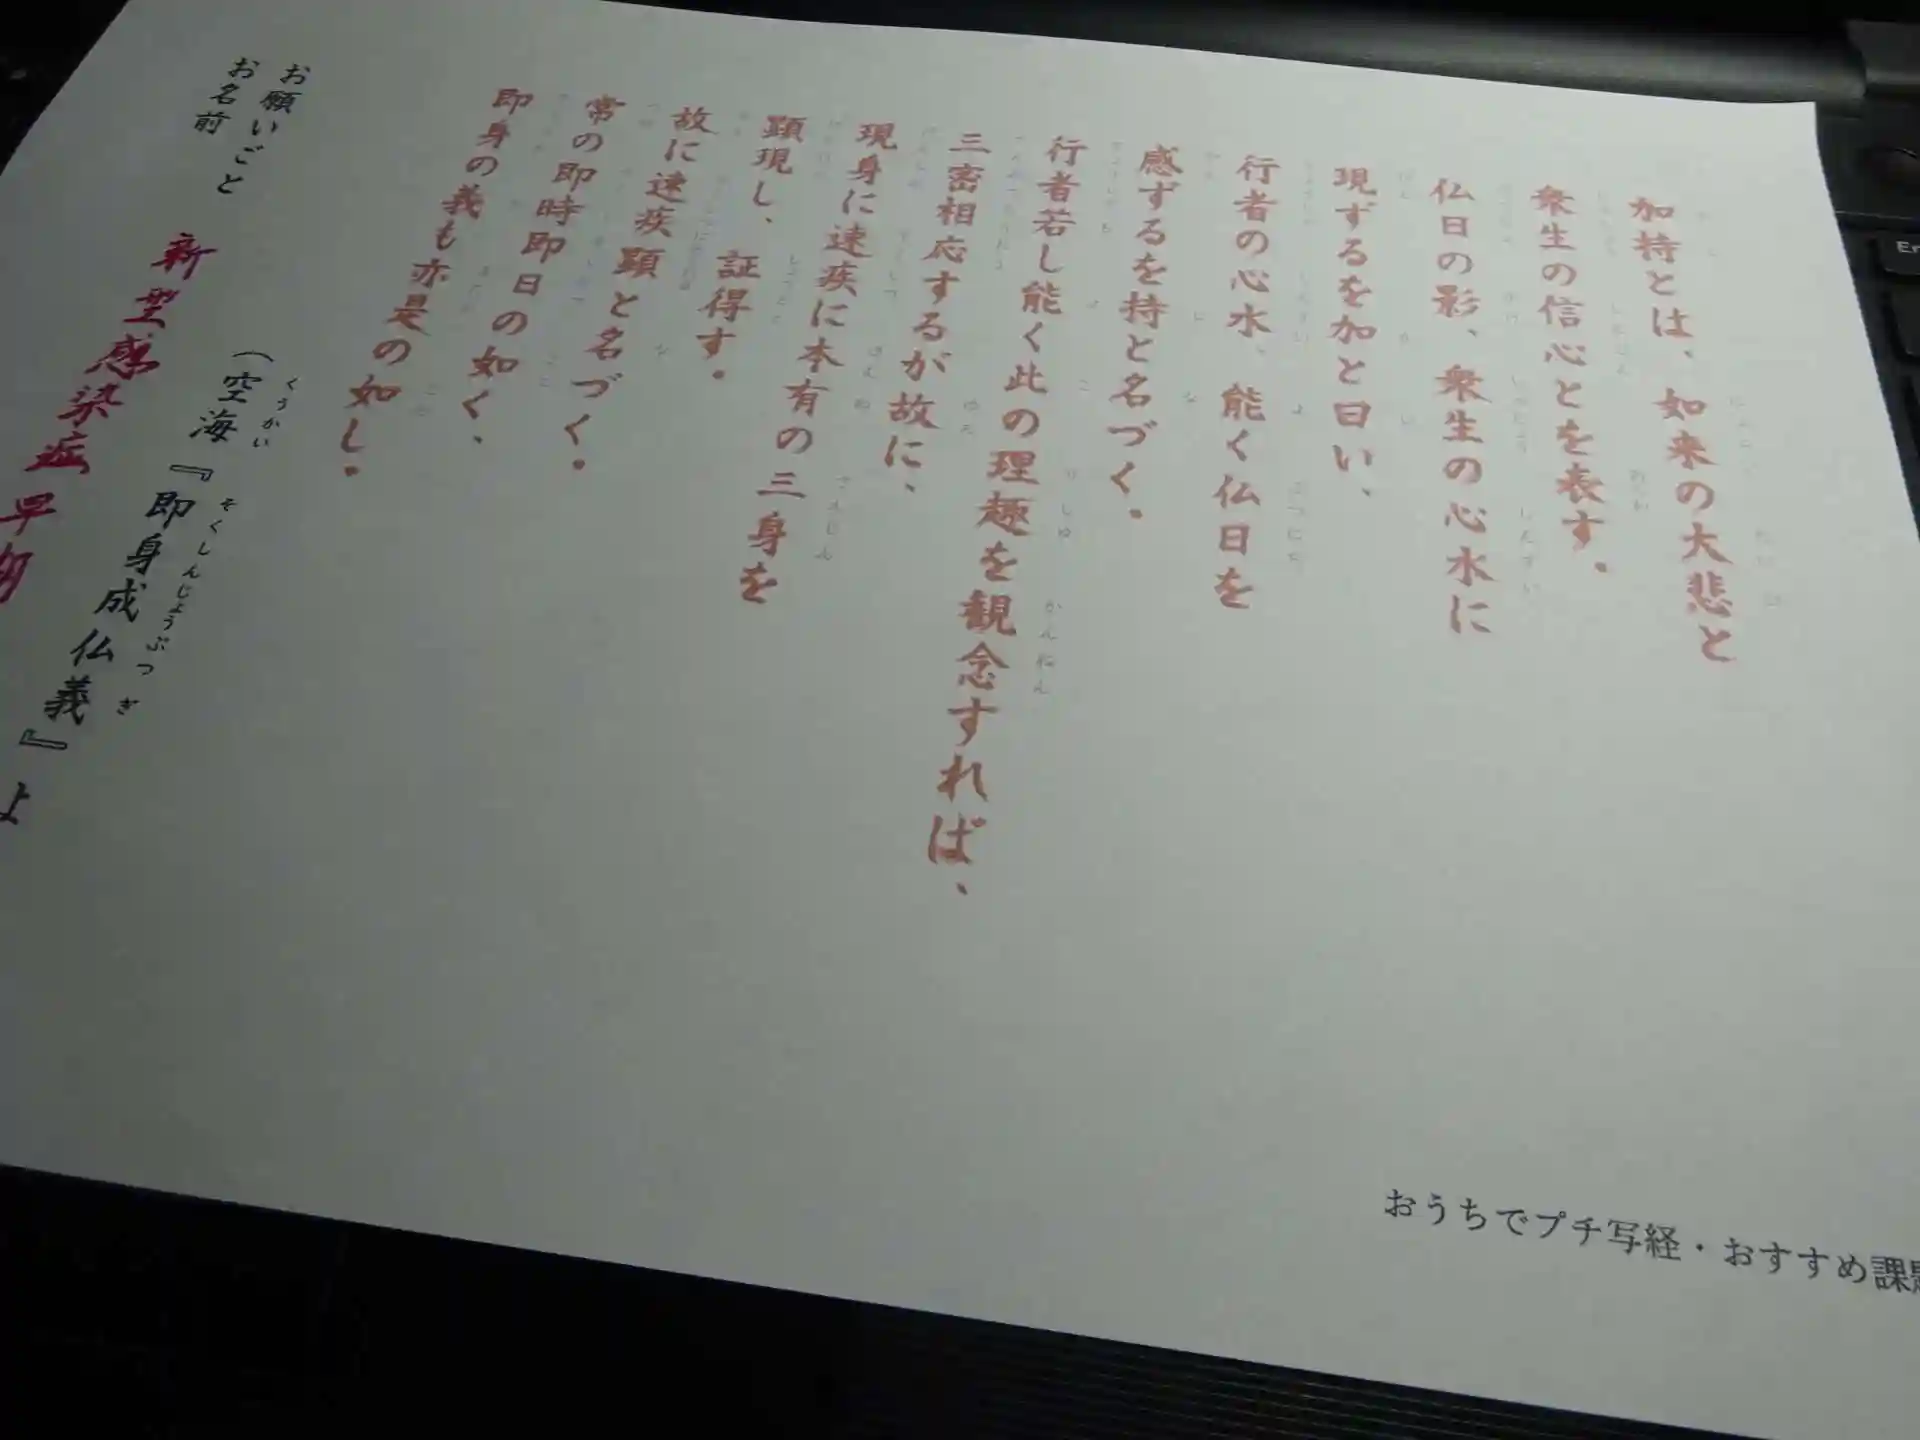 加持とは、如来の大悲と
衆生の信心とを表す。
仏日の影、衆生の心水に
現ずるを加と曰い、
行者の心水、能く仏日を
感ずるを持と名づく。
行者若し能く此の理趣を観念すれば、
三密相応するが故に、
現身に速疾に本有の三身を
顕現し、証得す。
故に速疾顕と名づく。
常の即時即日の如く、
即身の義も亦是の如し。
（空海『即身成仏義』よ
くうかい そくしんじょうぶつぎ
お願いごと
新型感染症早
お名前
おうちでプチ写経・おすすめ課